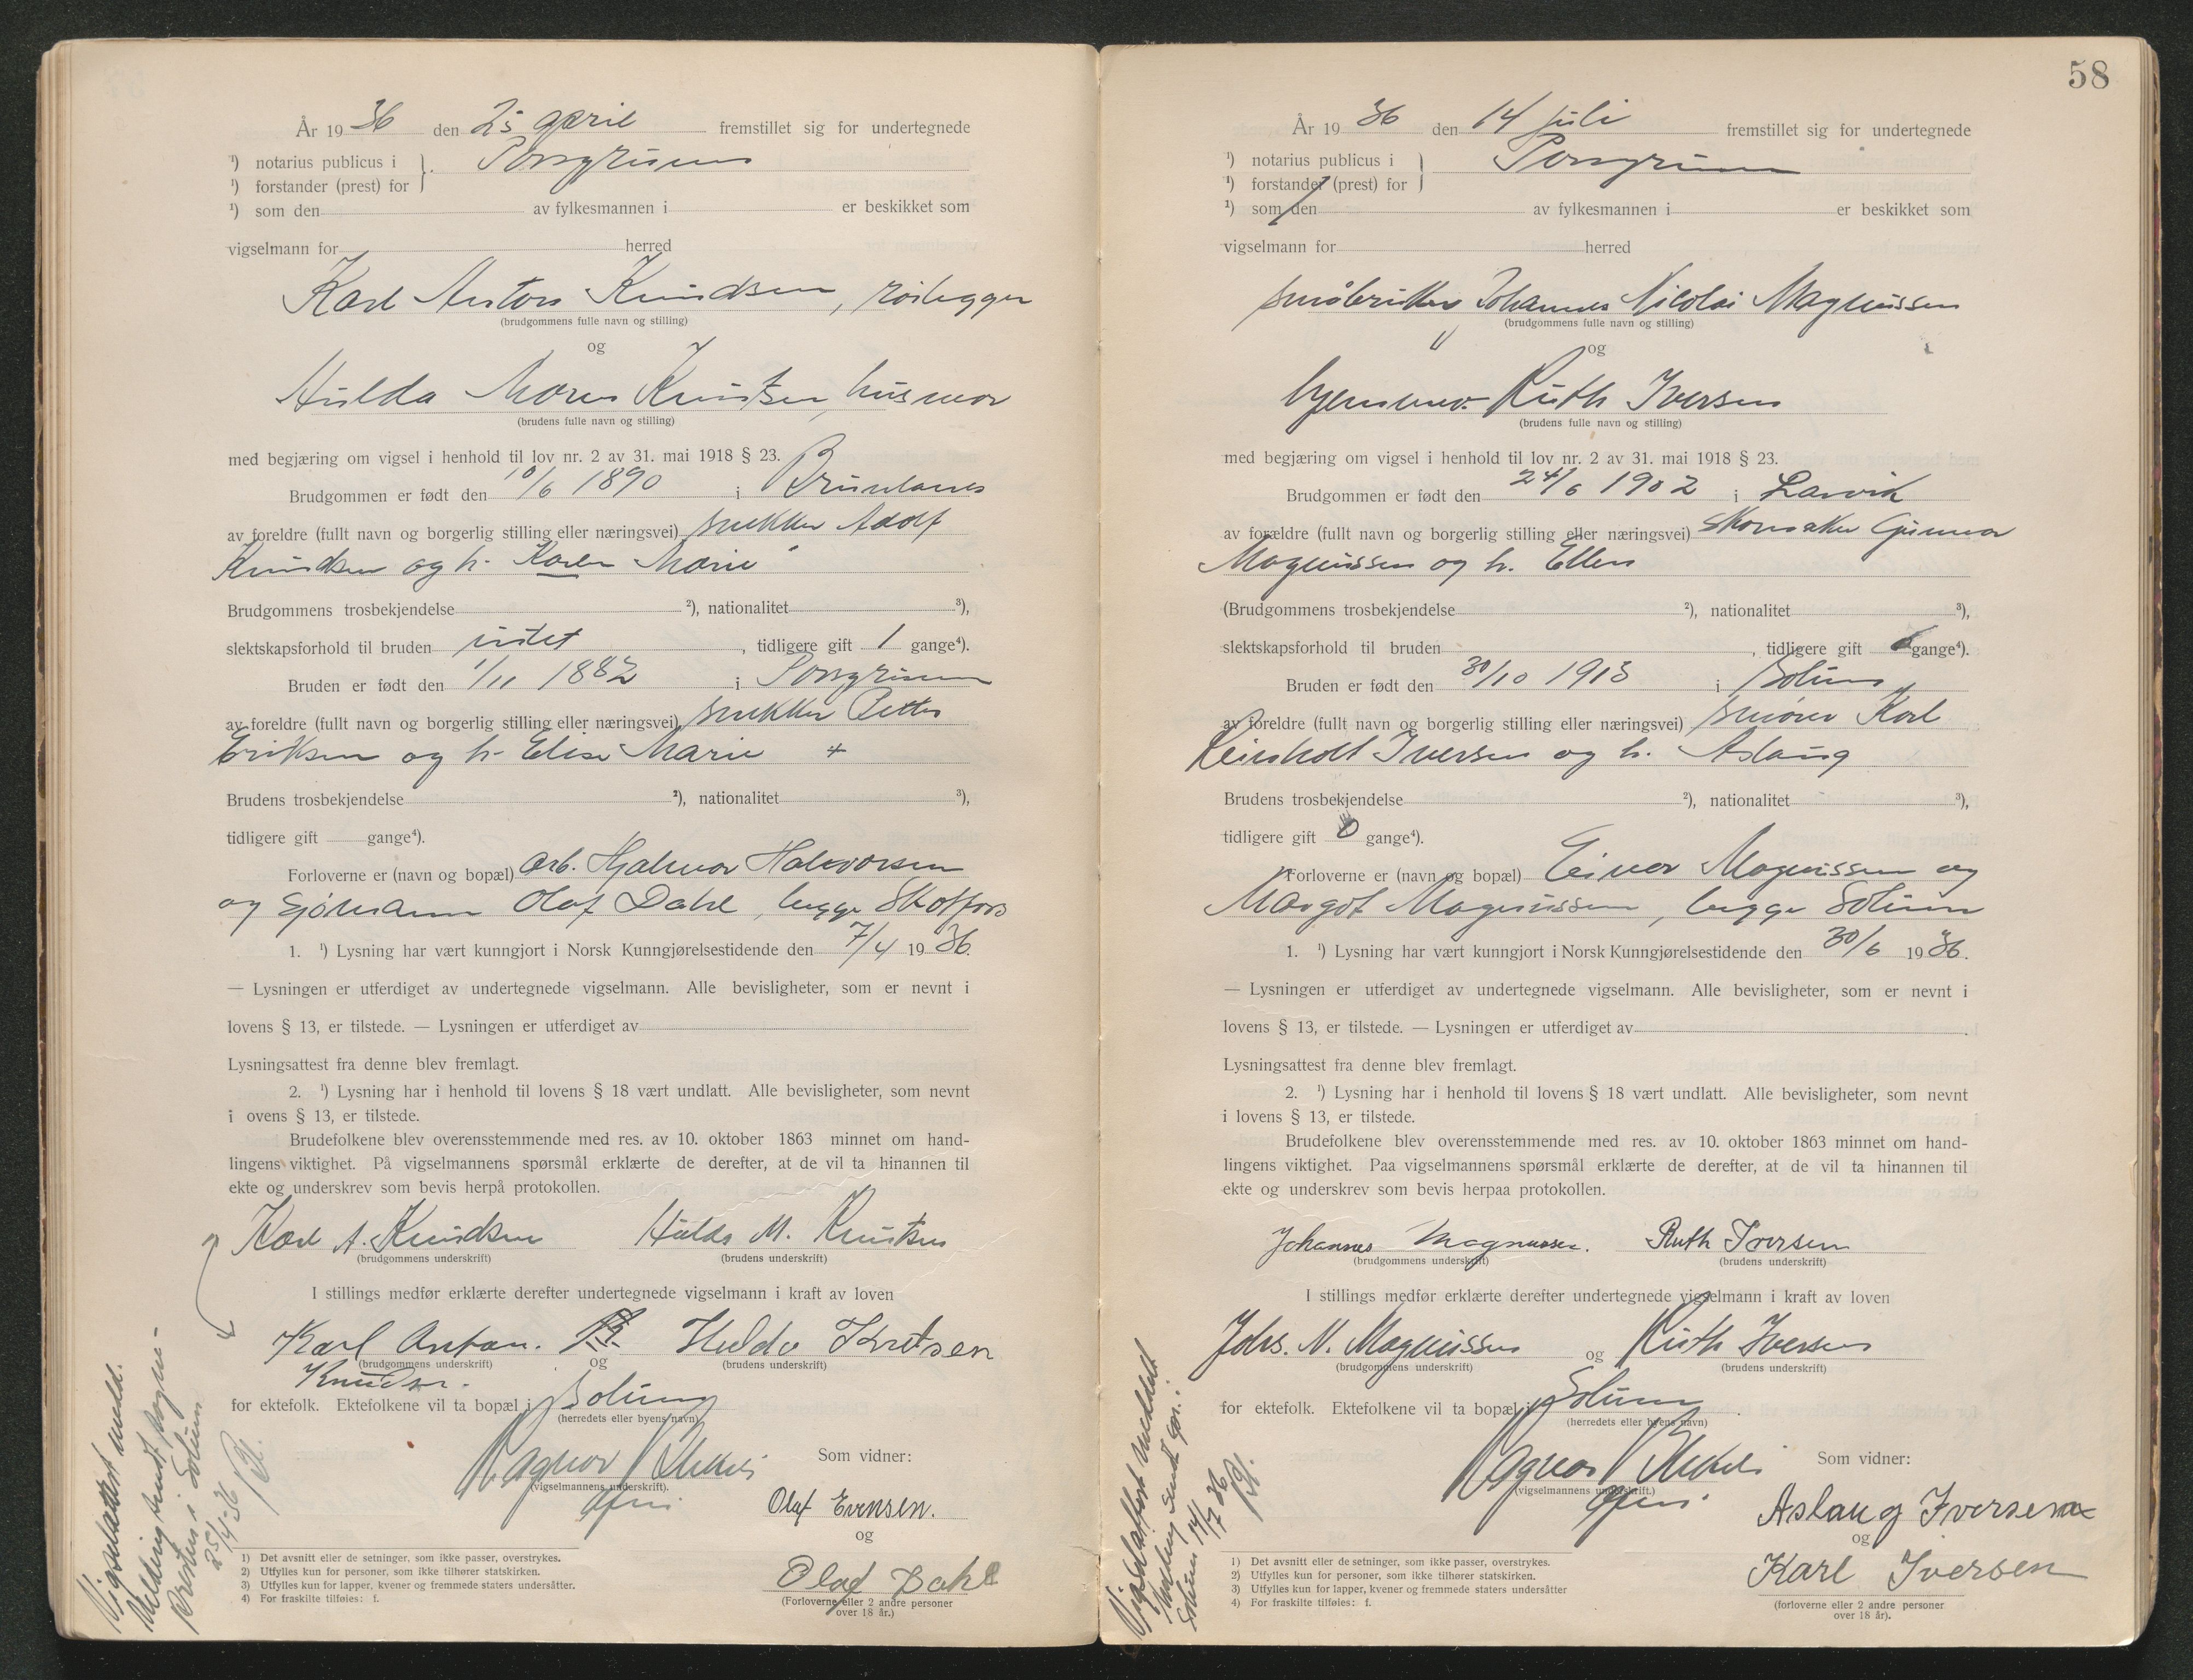 År 19 36 den 25 april fremstillet sig for undertegnede
¹) notarius publicus i Porsgrunn
¹) forstander (prest) for
¹) som den av fylkesmannen i er beskikket som
vigselmann for herred
Karl Anton Knudsen, rørlegger
(brudgommens fulle navn og stilling)
og
Hulda Maren Knutsen, husmor
(brudens fulle navn og stilling)
med begjæring om vigsel i henhold til lov nr. 2 av 31. mai 1918 § 23.
Brudgommen er født den 10/6 1890 i Brunlanes
av foreldre (fullt navn og borgerlig stilling eller næringsvei) snekker Adolf
Knudsen og h. Karen Marie
Brudgommens trosbekjendelse ²), nationalitet ³),
slektskapsforhold til bruden intet, tidligere gift 1 gange⁴).
Bruden er født den 1/11 1882 i Porsgrunn
av foreldre (fullt navn og borgerlig stilling eller næringsvei) snekker Petter
Eriksen og h. Elise Marie +
Brudens trosbekjendelse ²), nationalitet ³),
tidligere gift gange⁴).
Forloverne er (navn og bopæl) arb. Hjalmar Halvorsen
og sjömann Olaf Dahl, begge Skotfoss
1. ¹) Lysning har vært kunngjort i Norsk Kunngjørelsestidende den 7/4 19 36.
— Lysningen er utferdiget av undertegnede vigselmann. Alle bevisligheter, som er nevnt i
lovens § 13, er tilstede. — Lysningen er utferdiget av
Lysningsattest fra denne blev fremlagt.
2. ¹) Lysning har i henhold til lovens § 18 vært undlatt. Alle bevisligheter, som nevnt
i ovens § 13, er tilstede.
Brudefolkene blev overensstemmende med res. av 10. oktober 1863 minnet om hand-
lingens viktighet. På vigselmannens spørsmål erklærte de derefter, at de vil ta hinannen til
ekte og underskrev som bevis herpå protokollen.
Karl A. Knudsen Hulda M. Knutsen
(brudgommens underskrift) (brudens underskrift)
I stillings medfør erklærte derefter undertegnede vigselmann i kraft av loven
Karl Anton. og Hulda Knutsen
(brudgommens underskrift) (brudens underskrift)
Knudsen.
for ektefolk. Ektefolkene vil ta bopæl i Solum
(herredets eller byens navn)
Ragnar
(vigselmannens underskrift).
Som vidner:
Olaf Evensen.
og
Olaf Dahl
(Forloverne eller 2 andre personer
over 18 år.)
1) Det avsnitt eller de setninger, som ikke passer, overstrykes.
2) Utfylles kun for personer, som ikke tilhører statskirken.
3) Utfylles kun for lapper, kvener og fremmede staters undersåtter.
4) For fraskilte tilføies: f.
Vigselattest meld.
Melding sendt sogne-
presten i Solum
25/4-36
58
År 19 36 den 14 juli fremstillet sig for undertegnede
¹) notarius publicus i Porsgrunn
¹) forstander (prest) for
¹) som den av fylkesmannen i er beskikket som
vigselmann for herred
småbruker Johannes Nicolai Magnussen
(brudgommens fulle navn og stilling)
og
hjemmev. Ruth Iversen
(brudens fulle navn og stilling)
med begjæring om vigsel i henhold til lov nr. 2 av 31. mai 1918 § 23.
Brudgommen er født den 24/6 1902 i Larvik
av forældre (fullt navn og borgerlig stilling eller næringsvei) skomaker Gunnar
Magnussen og h. Ellen
(Brudgommens trosbekjendelse ²), nationalitet ³),
slektskapsforhold til bruden , tidligere gift 0 gange⁴).
Bruden er født den 30/10 1913 i Solum
av foreldre (fullt navn og borgerlig stilling eller næringsvei) smører Karl
Reinholt Iversen og h. Aslaug
Brudens trosbekjendelse ²), nationalitet ³),
tidligere gift 0 gange⁴).
Forloverne er (navn og bopæl) Einar Magnussen og
Margot Magnussen, begge Solum
1. ¹) Lysning har vært kunngjort i Norsk Kunngjørelsestidende den 30/6 19 36.
— Lysningen er utferdiget av undertegnede vigselmann. Alle bevisligheter, som er nevnt i
lovens § 13, er tilstede. — Lysningen er utferdiget av
Lysningsattest fra denne blev fremlagt.
2. ¹) Lysning har i henhold til lovens § 18 vært undlatt. Alle bevisligheter, som nevnt
i lovens § 13, er tilstede.
Brudefolkene blev overensstemmende med res. av 10. oktober 1863 minnet om hand-
lingens viktighet. Paa vigselmannens spørsmål erklærte de derefter, at de vil ta hinannen til
ekte og underskrev som bevis herpaa protokollen.
Johannes Magnussen. Ruth Iversen
(brudgommens underskrift) (brudens underskrift)
I stillings medfør erklærte derefter undertegnede vigselmann i kraft av loven
Johs. N. Magnussen og Ruth Iversen
(brudgommens underskrift) (brudens underskrift)
for ektefolk. Ektefolkene vil ta bopæl i Solum
(herredets eller byens navn)
Ragnar
(vigselmannens underskrift.)
Som vidner:
Aslaug Iversen
og
Karl Iversen
(forloverne eller 2 andre personer
over 18 år).
1) Det avsnitt eller de setninger, som ikke passer, overstrykes.
2) Utfylles kun for personer, som ikke tilhører statskirken.
3) Utfylles kun for lapper, kvener og fremmede staters undersåtter
4) For fraskilte tilføies: f.
Vigselattest meddelt
Melding sendt spr. i
Solum 14/7 36